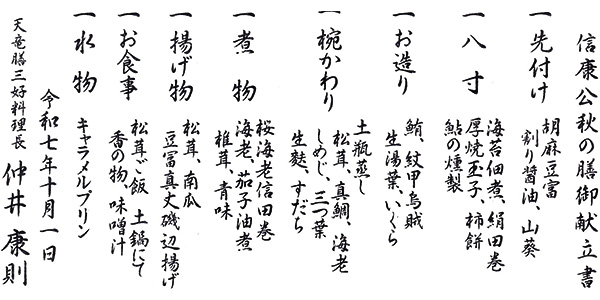 信康公秋の膳御献立書
一先付け
胡麻豆富
割り醤油、山葵
一八寸
海苔佃煮、絹田巻
厚焼玉子、柿餅
鮎の燻製
一お造り
鮪、紋甲烏賊
生湯葉、いくら
一椀かわり
土瓶蒸し
松茸、真鯛、海老
しめじ、三つ葉
生麩、すだち
一煮物
桜海老信田巻
海老、茄子油煮
椎茸、青味
一揚げ物
松茸、南瓜
豆富真丈磯辺揚げ
一お食事
松茸ご飯 土鍋にて
香の物、味噌汁
一水物
キャラメルプリン
令和七年十月一日
天竜膳三好料理長 仲井康則